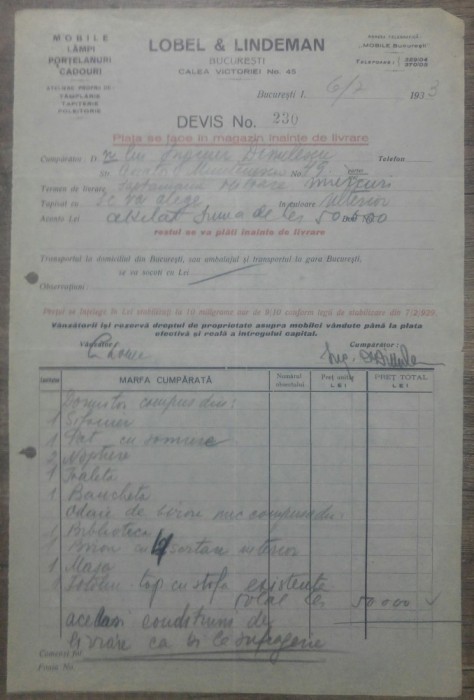 MOBILE
LĂMPI
PORȚELANURI
CADOURI
ATELIERE PROPRII DE
TÂMPLĂRIE
TAPIȚERIE
POLEITORIE
LOBEL & LINDEMAN
BUCUREȘTI
CALEA VICTORIEI No. 45
ADRESA TELEGRAFICĂ:
„MOBILE București"
TELEFOANE:
București 1. 6/2 1933
DEVIS No. 230
Plata se face în magazin înainte de livrare
Cumpărător D. Inginer Dimitrescu Telefon
Termen de livrare miercuri
Tapisat cu se va alege în culoare interior
Aconto Lei achitat suma de lei 50.000
restul se va plăti înainte de livrare
Transportul la domiciliul din București, sau ambalajul și transportul la gara București,
se va socoti cu Lei
Observațiuni
Prețul se înțelege în Lei stabilizați la 10 miligrame aur de 9/10 conform legii de stabilizare din 7/2/929.
Vânzătorii își rezervă dreptul de proprietate asupra mobilei vândute până la plata
efectivă și reală a întregului capital.
Vânzător: Cumpărător:
Cantitatea MARFA CUMPĂRATĂ Numărul obiectului Preț unitar LEI PREȚ TOTAL LEI
Dormitor compus din:
1 Șifonier
1 Pat cu somieră
2 Noptiere
1 Toaleta
1 Bancheta
Odaie de birou mic compusă din:
1 Biblioteca
1 Birou cu 4 sertare interior
1 Masa
1 Fotoliu tap cu stofa existentă
Total lei 50000
aceleași condițiuni de
livrare ca și la sufragerie
Comanda
Fișa No.